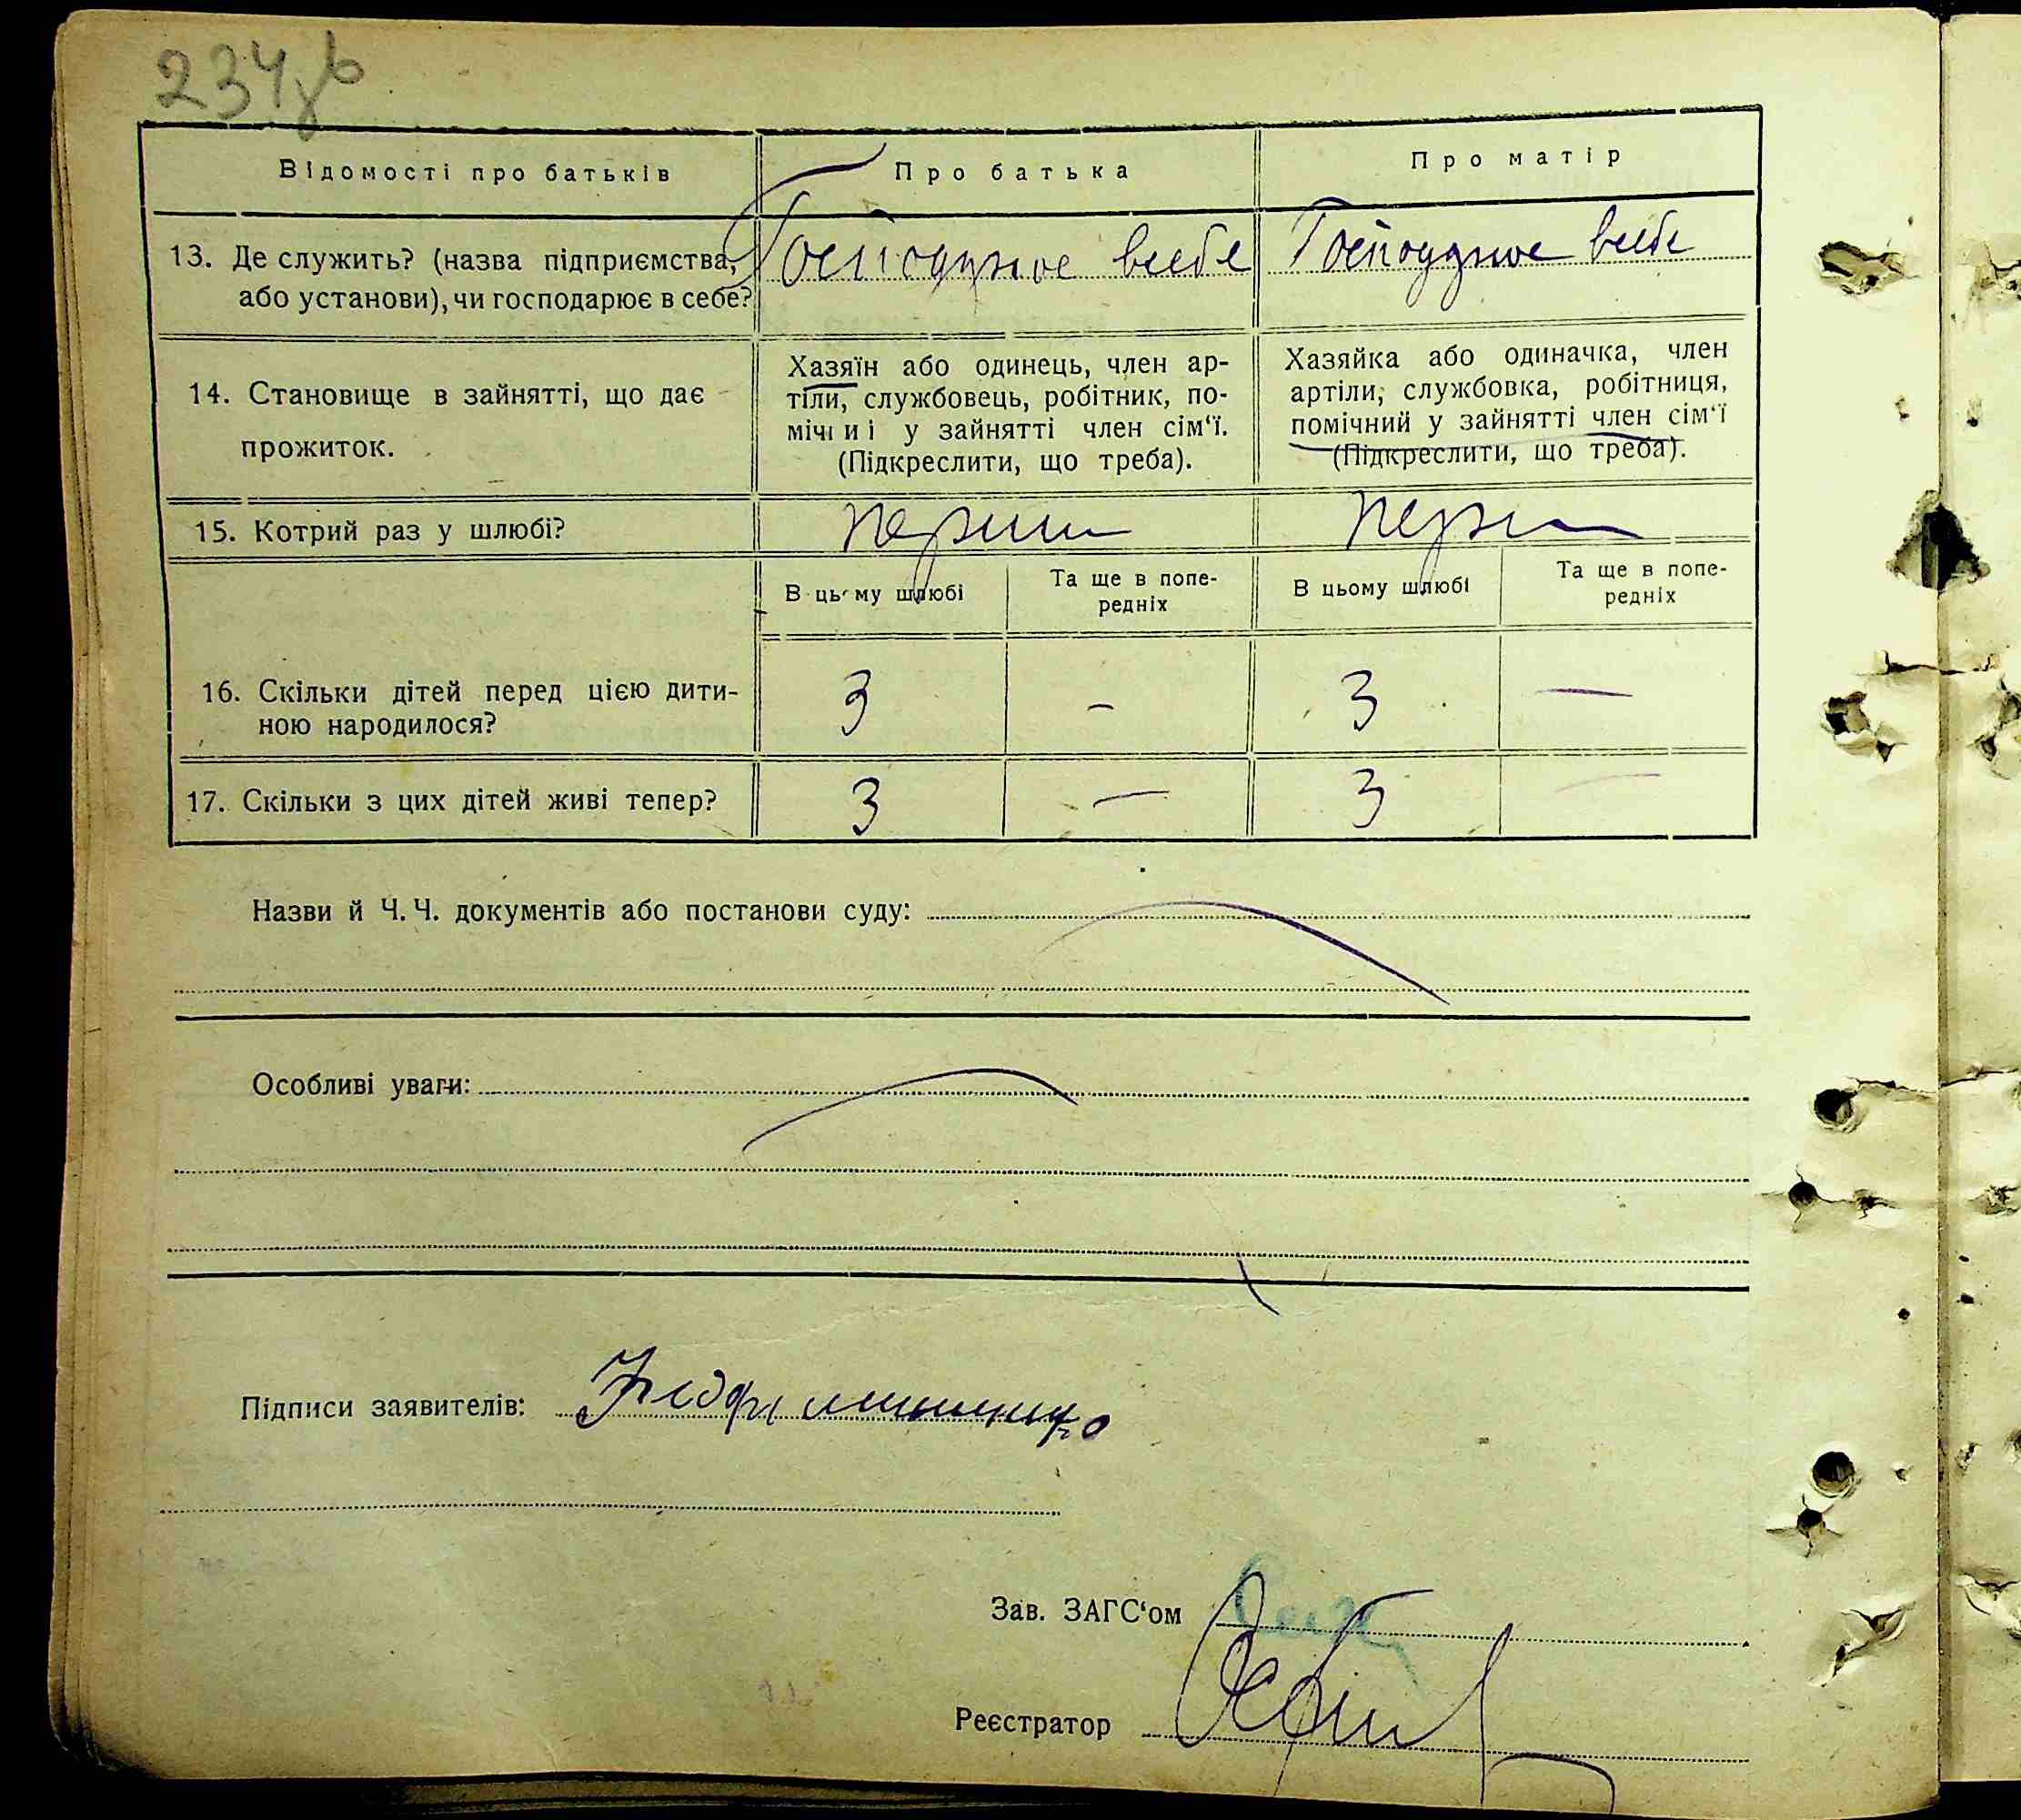 234
Відомості про батьків
Про батька
Про матір
13. Де служить? (назва підприємства,
або установи), чи господарює в себе?
Господарює в себе
Господарює в себе
14. Становище в зайнятті, що дає
прожиток.
Хазяїн або одинець, член ар-
тіли, службовець, робітник, по-
мічний у зайнятті член сім‘ї.
(Підкреслити, що треба).
Хазяйка або одиначка, член
артіли, службовка, робітниця,
помічний у зайнятті член сім‘ї
(Підкреслити, що треба).
15. Котрий раз у шлюбі?
перший
перший
В цьому шлюбі
Та ще в попе-
редніх
В цьому шлюбі
Та ще в попе-
редніх
16. Скільки дітей перед цією дити-
ною народилося?
3
-
3
—
17. Скільки з цих дітей живі тепер?
3
—
3
—
Назви й Ч. Ч. документів або постанови суду:
Особливі уваги:
Підписи заявителів:
Зав. ЗАГС‘ом
Реєстратор